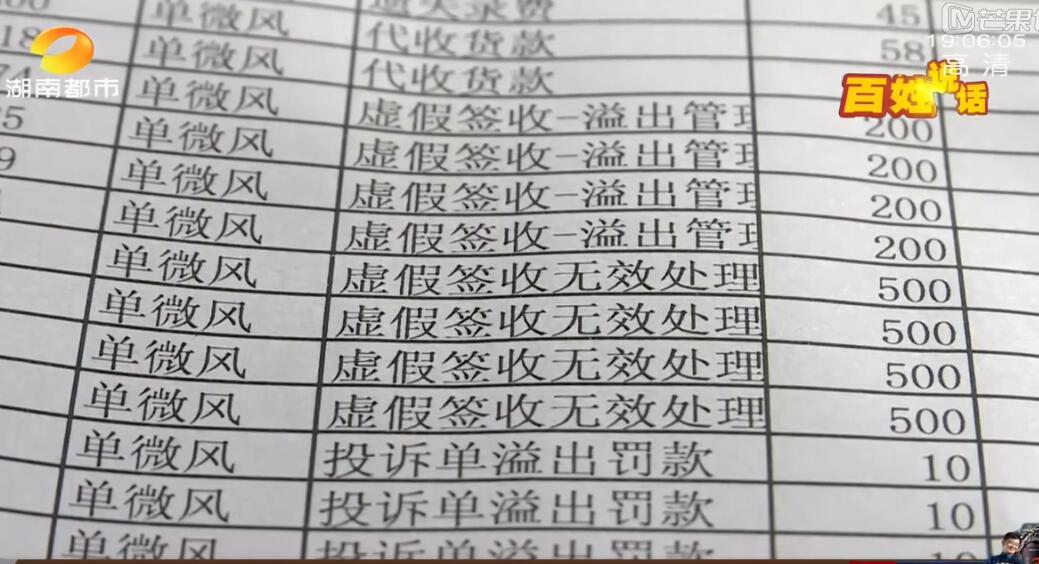 湖南都市
芒果
19:06:05
高清
百姓说话
45
单微风 代收货款 58
单微风 代收货款
单微风 虚假签收-溢出管 200
单微风 虚假签收-溢出管 200
单微风 虚假签收-溢出管 200
单微风 虚假签收-溢出管 200
单微风 虚假签收无效处理 500
单微风 虚假签收无效处理 500
单微风 虚假签收无效处理 500
单微风 虚假签收无效处理 500
单微风 投诉单溢出罚款 10
单微风 投诉单溢出罚款 10
单微风 投诉单溢出罚款 10